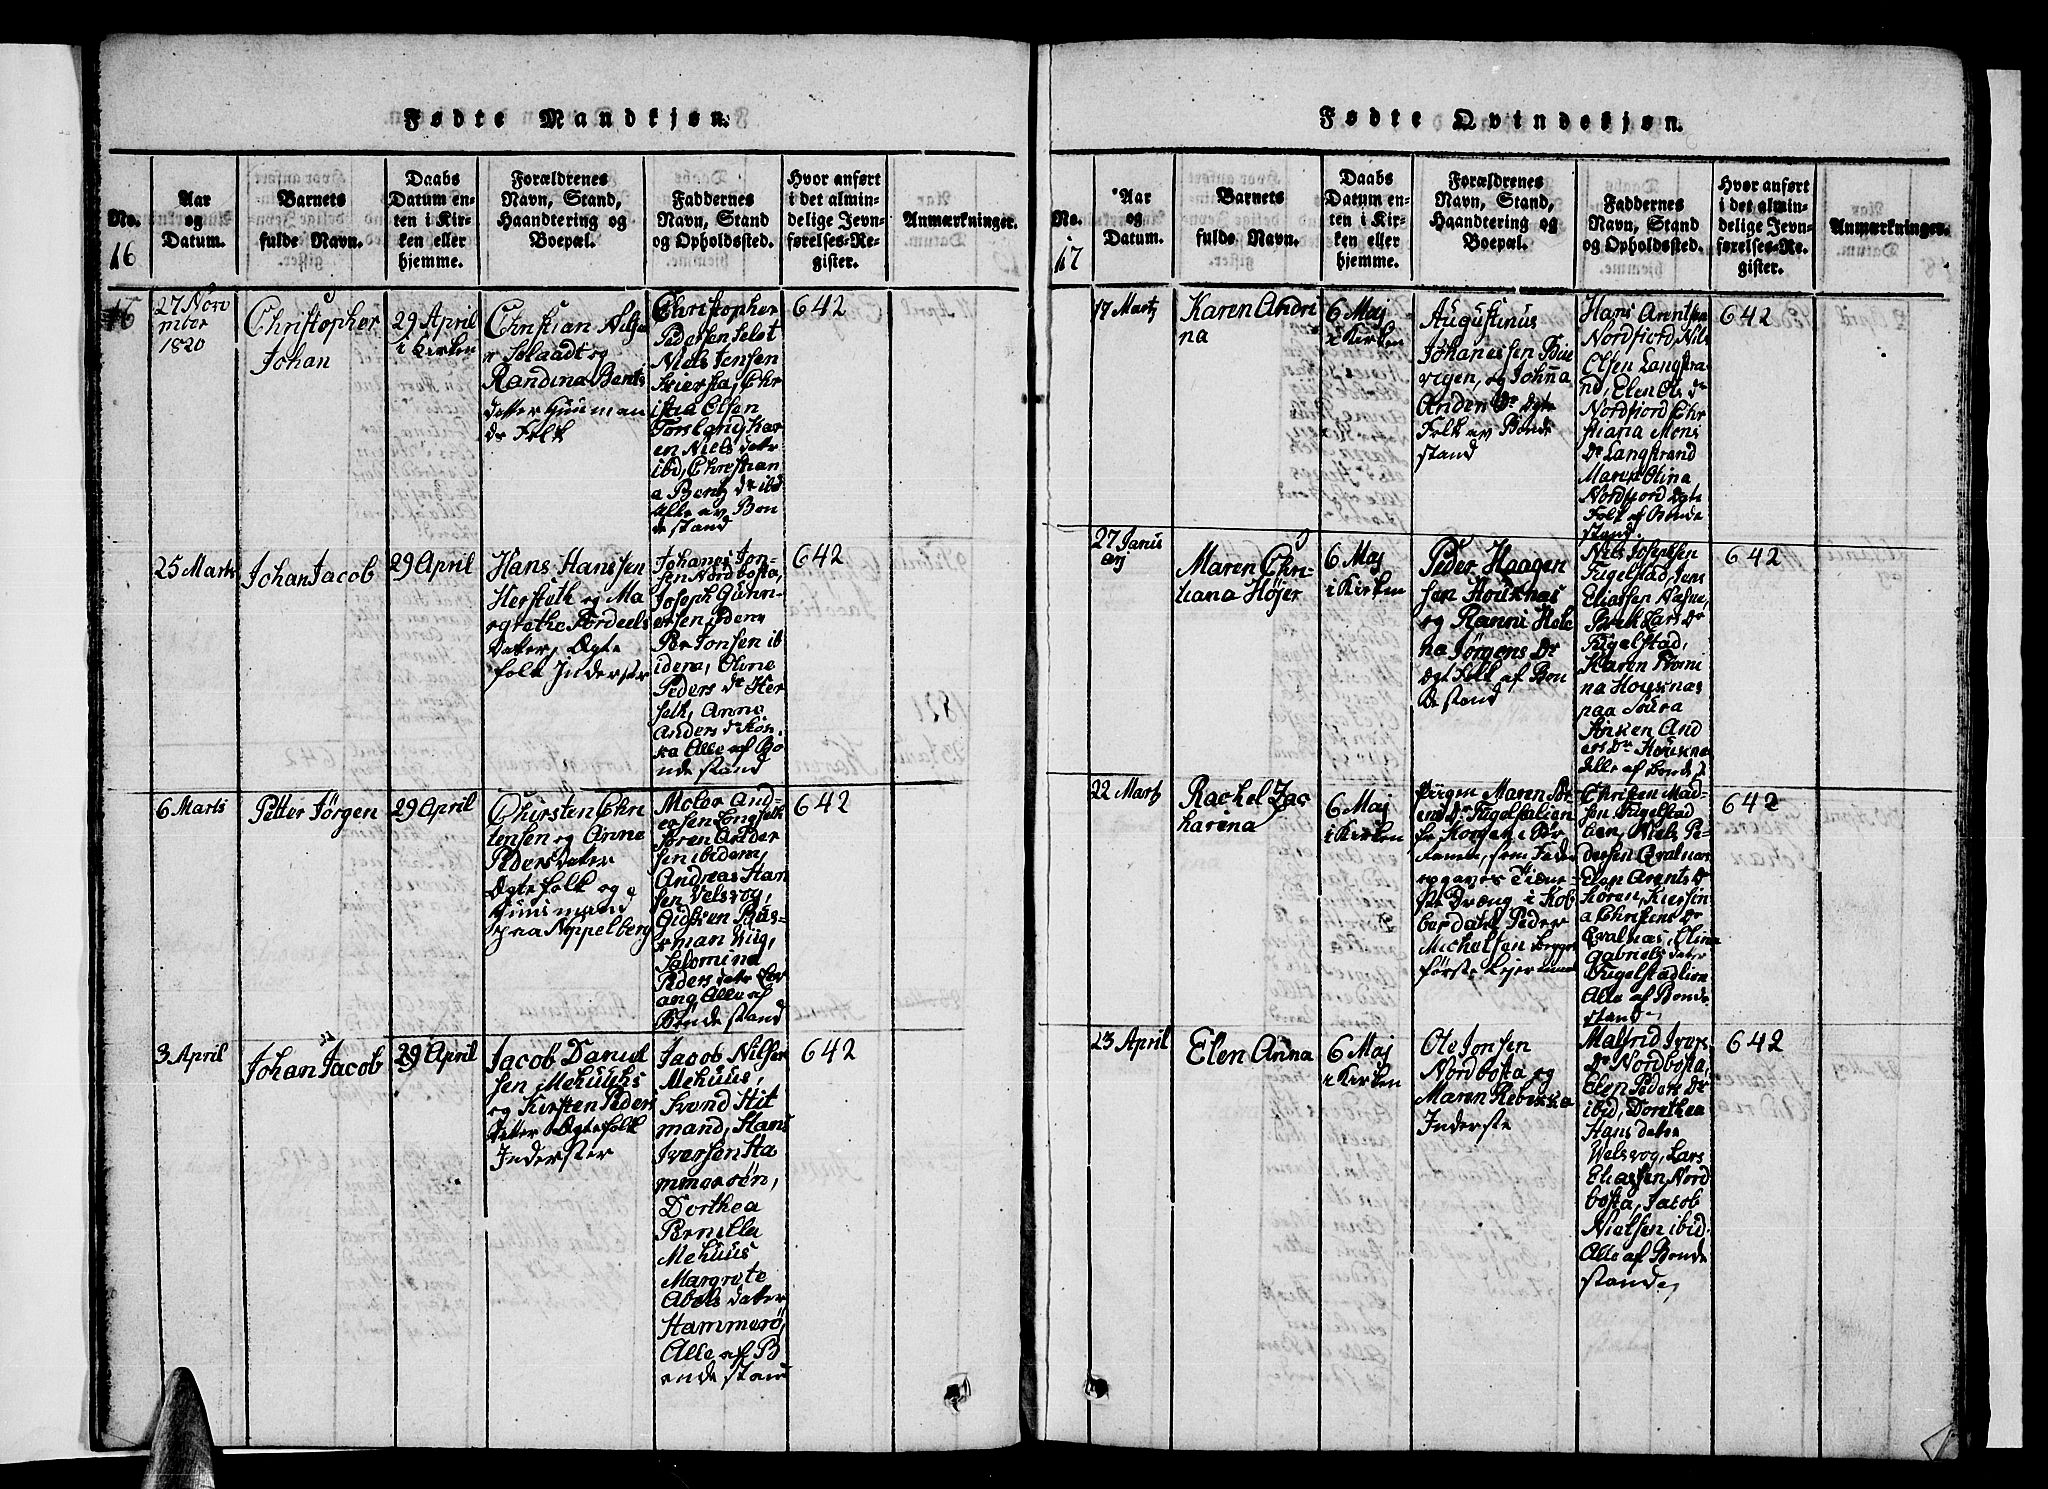 Fødte Mandkjøn.
No.
16
Aar
og
Datum.
Barnets
fulde Navn.
Daabs
Datum en-
ten i Kir-
ken eller
hjemme.
Forældrenes
Navn, Stand,
Haandtering og
Boepæl.
Faddernes
Navn, Stand
og Opholdssted.
Hvor anført
i det almin-
delige Jevn-
førelses-Re-
gister.
Anmærkninger.
27 Nov
mber
1820
Christopher
Johan
29 April
i Kirken
Christian Nilse
n Solaadt og
Randina Bents
datter Huusman
ds Folk
Christopher
Pedersen Selet
Niels Jensen
Kviersta, Chr
istia Olsen
Torslang Kar
en Niels datt
ibid, Christian
a Bentz dr ibd
Alle av Bon
de stand
642
25 Marts
Johan Jacob
29 April
Hans Hanssen
Herstelh og Ma
ogrethe Pordeels
Datter, Ægte
folk Inderster
Johanes Jon-
sen Nordbosta,
Joseph Gunn-
ersen ibidem
Per Jonsen ib
idem, Oline
Peders dr Her
selh, Anne
Anders dr Kon
ka Alle af Bo
nde stand
642
6 Marts
Petter Jörgen
29 April
Chirsten Chri
tensen og Anne
Pedersdatter
Ægtefolk og
Huusmand
paa Neppelberg
Moler And
ersen Longselh
Sören Ander
sen ibidem,
Andreas Han
sen Velsvog,
Gidsken Bus-
man Vug,
Salomine
Peders datter Lov
ang, Alle af
Bonde stand
642
3 April
Johan Jacob
29 April
Jacob Daniel
sen Mehuuhs
og Kirsten Peders
datter Ægtefolk
Inderster
Jacob Nilsen
Mehuus,
Svend Stit
mand, Hans
Iversen Ha
mmerøen,
Dorthea
Pernilla
Mehuus
Margrete
Abels datter
Hammerö,
Alle af B
onde stand
642
Fødte Qvindekjøn.
No.
17
Aar
og
Datum.
Barnets
fulde Navn.
Daabs
Datum en-
ten i Kir-
ken eller
hjemme.
Forældrenes
Navn, Stand,
Haandtering og
Boepæl.
Faddernes
Navn, Stand
og Opholdssted.
Hvor anført
i det almin-
delige Jevn-
førelses-Re-
gister.
Anmærkninger.
17 Marts
Karen Andri
na
6 Maj
i Kirken
Augustinus
Johanessen Bue
vigen, og Johna
Anden Dr Ægte
Folk av Bonde
stand
Hans Arntsen
Nordfiord, Nils
Olsen Langstra
nd, Elen Ols dr
Nordfiord Chr
stiana Mons
Dr Langstrand
Maren Olina
Nordfiord Ægte
Folk af Bonde
stand.
642
27 Janu
arj
Maren Chri-
tiana Höjer
6 Maj
i Kirken
Peder Haagen
sen Houknas
og Ranni Hele
na Jörgens Dr
Ægte Folk af Bon
de stand
Niels Josephsen
Fugelstad, Jens
Eliassen Næsne,
Breh Lars Dr
Fugelstad,
Karen Promi
na Houknas
paa Soura
Anken And
ers Dr Houknas
Alle af bonde
642
22 Marts
Rachel Zac
harina
6 Maj
i Kirken
Pigen Maren Sör
ens dr Fugelstalien
som Fader
opgaves Tiene-
ste Dræng i Kob
berdahl Peder
Michelsen begges
förste Lejermaal
Christen Mad-
sen Fugelstad
lien, Niels Pe-
dersen Qvalnas,
Elen Arnts Dr
Kören, Kiersin
a Christens Dr
Qvalnas, Olina
Gabriels datter
Fugelstadlien
Alle af Bonde
stand
642
23 April
Elen Anna
6 Maj
i Kirken
Ole Jonsen
Nordbosta og
Maren Rebekka
Inderste
Malfrid Ivers
Dr Nordbosta,
Elen Peders Dr
ibid, Dorethea
Hans datter
Welsvog, Lars
Eliassen Nord
bosta, Jacob
Nielsen ibid.
Alle af Bonde
stand
642